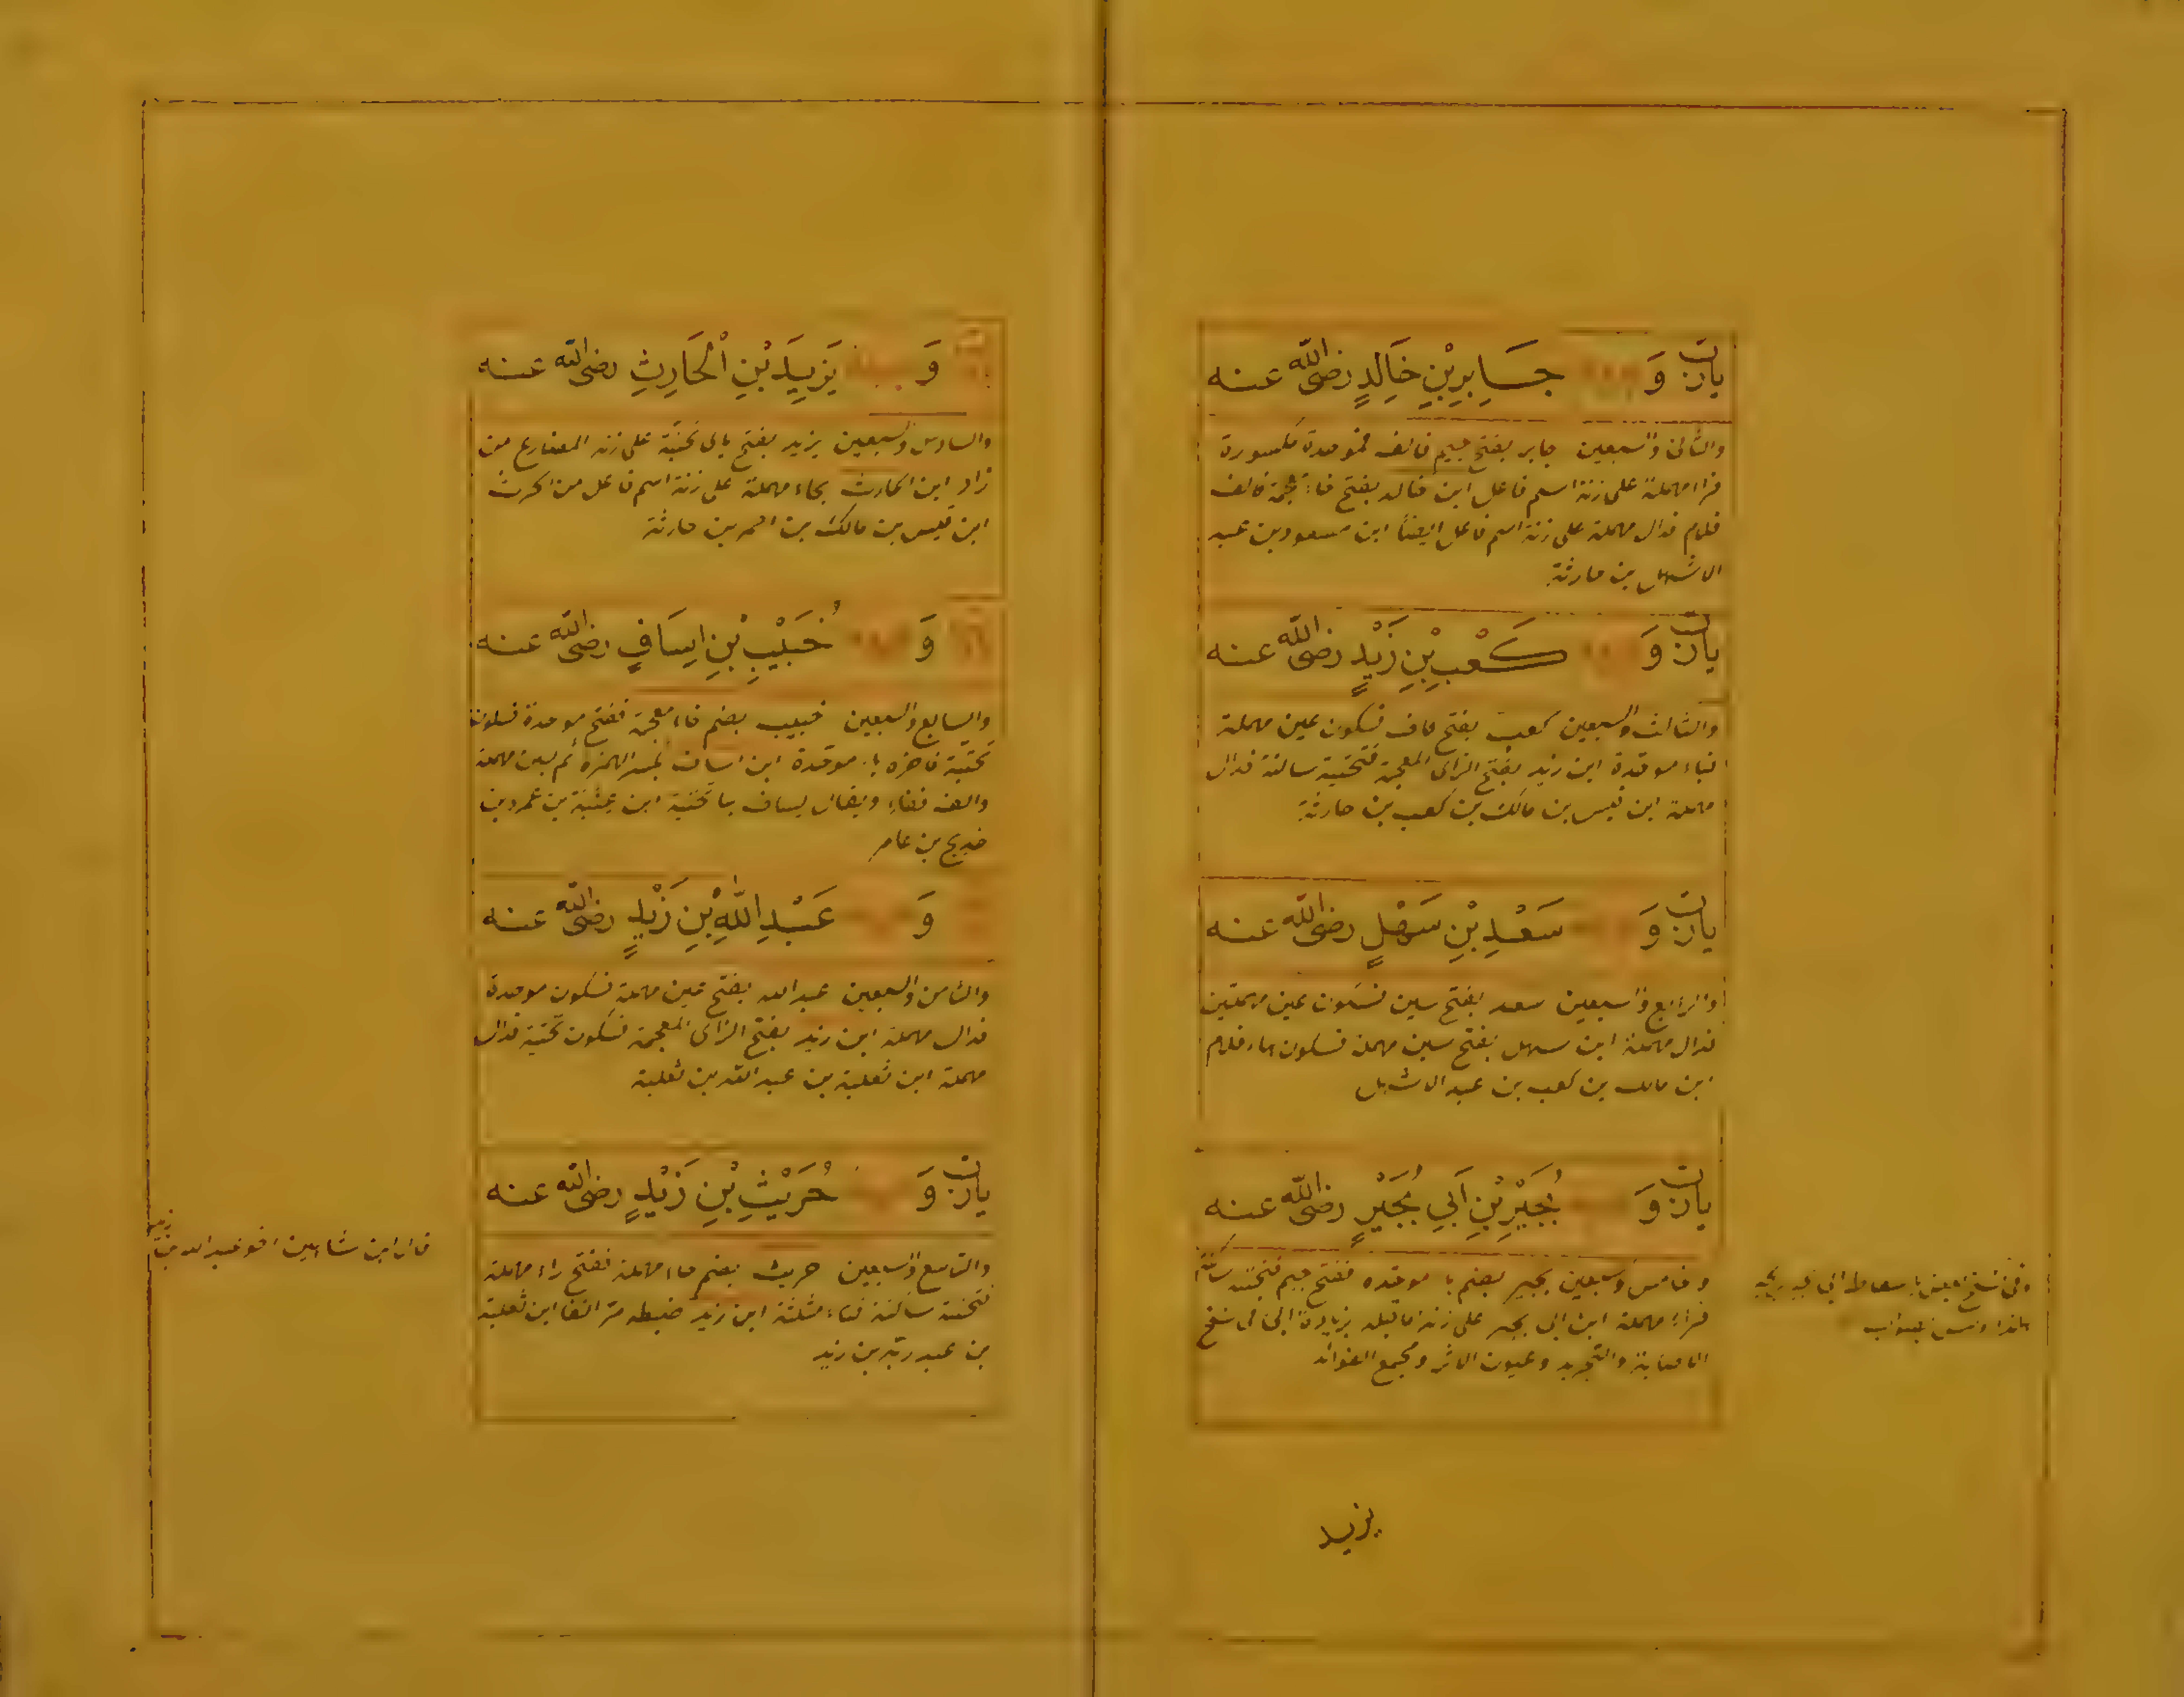 يارن وَ جَابِرِ بْنِ خَالِدٍ رضى الله عنه
والثانى والسبعين جابر بفتح جيم فالف فموحدة مكسورة
فراء مهملة على زنة اسم فاعل ابن خالد بفتح خاء معجمة فالف
فلام فدال مهملة على زنة اسم فاعل ايضًا ابن مسعود بن عبد
الاشهل بن حارثة
يارن وَ كَعْبِ بْنِ زَيْدٍ رضى الله عنه
والثالث والسبعين كعب بفتح كاف فسكون عين مهملة
فباء موحدة ابن زيد بفتح الزاى المعجمة فتحتية ساكنة فدال
مهملة ابن قيس بن مالك بن كعب بن حارثة
يارن وَ سَعْدِ بْنِ سَهْلٍ رضى الله عنه
والرابع والسبعين سعد بفتح سين فسكون عين مهملتين
فدال مهملة ابن سهل بفتح سين مهملة فسكون هاء فلام
ابن مالك بن كعب بن عبد الاشهل
يارن وَ بُجَيْرِ بْنِ اَبِي بُجَيْرٍ رضى الله عنه
وخامس وسبعين بجير بضم با موحده ففتح جيم فتحتية ساكنة
فراء مهملة ابن ابى بجير على زنة ما قبله بزيادة ابى فى نسخ
الاصابة والتجريد وعيون الاثر ومجمع الفوائد
وفى نسخ باسقاط ابى
يزيد
وَ يَزِيدَ بْنِ الْحَارِثِ رضى الله عنه
والسادس والسبعين يزيد بفتح ياى تحتية على زنة المضارع من
زاد ابن الحارث بحاء مهملة على زنة اسم فاعل من الحرث
ابن قيس بن مالك بن احمر بن حارثة
وَ خُبَيْبِ بْنِ اِسَافٍ رضى الله عنه
والسابع والسبعين خبيب بضم خاء معجمة ففتح موحدة فسكون
تحتية فاخره با موحدة ابن اساف بكسر الهمزة ثم سين مهملة
والف ففاء ويقال يساف بيا تحتية ابن عتبة بن عمرو بن
خديج بن عامر
وَ عَبْدِ اللّٰهِ بْنِ زَيْدٍ رضى الله عنه
والثامن والسبعين عبد الله بفتح عين مهملة فسكون موحدة
فدال مهملة ابن زيد بفتح الزاى المعجمة فسكون تحتية فدال
مهملة ابن ثعلبة بن عبد الله بن ثعلبة
يارن وَ حُرَيْثِ بْنِ زَيْدٍ رضى الله عنه
والتاسع والسبعين حريث بضم حاء مهملة ففتح راء مهملة
فتحتية ساكنة فثاء مثلثة ابن زيد ضبطه مر انفا ابن ثعلبة
بن عبد ربه بن زيد
قال ابن شاهين اخو عبد الله بن زيد